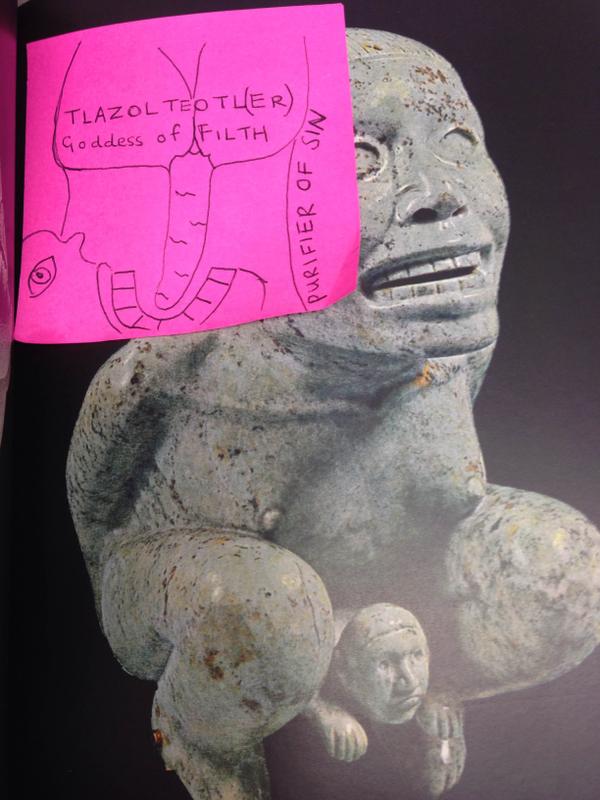 TLAZOLTEOTL(ER)
Goddess of FILTH
PURIFIER OF SIN